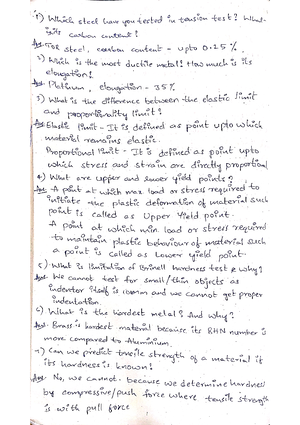 1) Which steel have you tested in tension test? What
its carbon content?
Ans- Tor steel, carbon content - upto 0.25 %.
2) Which is the most ductile metal? How much is its
elongation?
Ans- Platinum, elongation - 35%
3) What is the difference between the elastic limit
and proportionality limit?
Ans- Elastic limit - It is defined as point upto which
material remains elastic.
Proportional limit - It is defined as point upto
which stress and strain are directly proportional
4) What are upper and lower yield points?
Ans- A point at which max load or stress required to
initiate the plastic deformation of material such
point is called as Upper Yield point.
A point at which min load or stress required
to maintain plastic behaviour of material such
a point is called as Lower yield point.
5) What is limitation of Brinell hardness test & why?
Ans- We cannot test for small/thin objects as
indentor itself is 10mm and we cannot get proper
indentation.
6) What is the hardest metal? And why?
Ans- Brass is hardest material because its BHN number is
more compared to Aluminium.
7) Can we predict tensile strength of a material if
its hardness is known?
Ans- No, we cannot. because we determine hardness
by compressive/push force where tensile strength
is with pull force